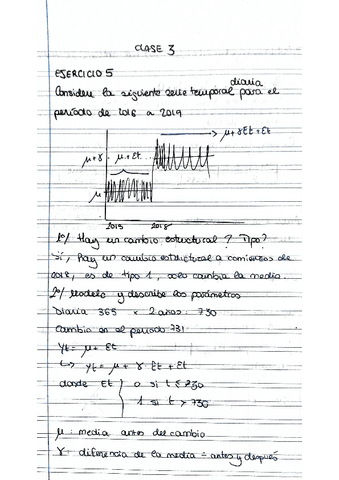 CLASE 3
EJERCICIO 5
diaria
Considera la siguiente serie temporal para el
período de 2016 a 2019
→ μ+γξt+εt
μ+γ μ+εt
μ
2015 2018
1º/ Hay un cambio estructural? Tipo?
Sí, hay un cambio estructural a comienzos de
2018, es de tipo 1, solo cambia la media.
2º/ Modelo y describe los parámetros
Diaria 365 × 2 años: 730
Cambio en el período 731
Yt = μ + εt
↳ yt = μ + γ · ξt + εt
donde ξt { 0 si t ≤ 730
1 si t > 730
μ: media antes del cambio
γ = diferencia de la media = antes y después